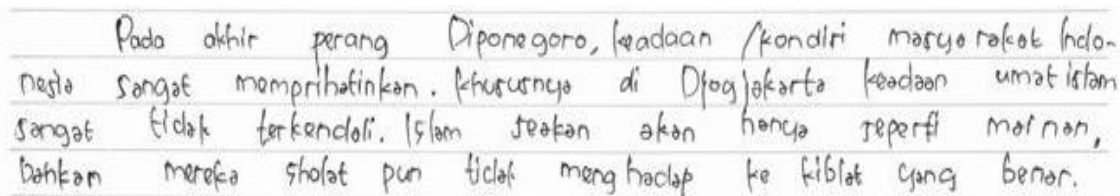 Pada akhir perang Diponegoro, keadaan /kondisi masyarakat Indo-
nesia sangat memprihatinkan. Khususnya di Djogjakarta keadaan umat islam
sangat tidak terkendali. Islam seakan akan hanya seperti mainan,
bahkan mereka sholat pun tidak menghadap ke kiblat yang benar.